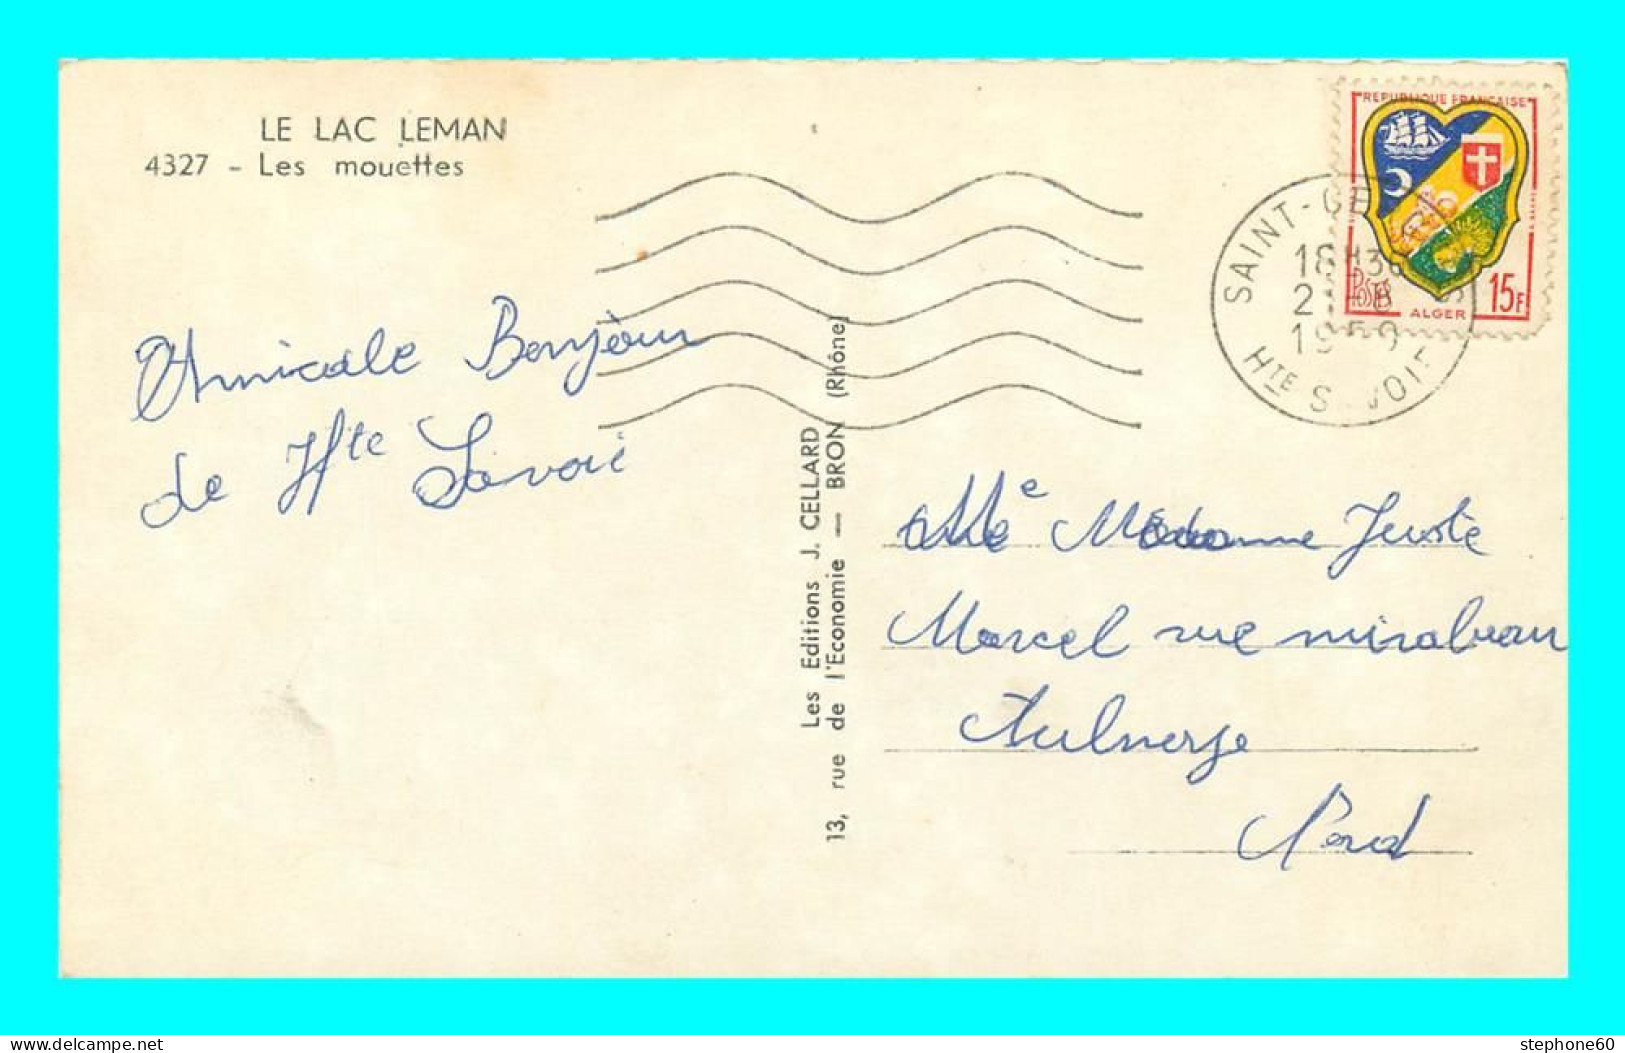 LE LAC LEMAN
4327 - Les mouettes
Amicale Bonjour
de Hte Savoie
Les Editions J. CELLARD
13, rue de l'Economie — BRON (Rhône)
REPUBLIQUE FRANÇAISE
POSTES
ALGER
15F
SAINT-GE
18H30
1959
HTE S VOIE
Me Madame Juste
Marcel rue mirabeau
Aulnerge
Nord
delcampe.net
stephone60